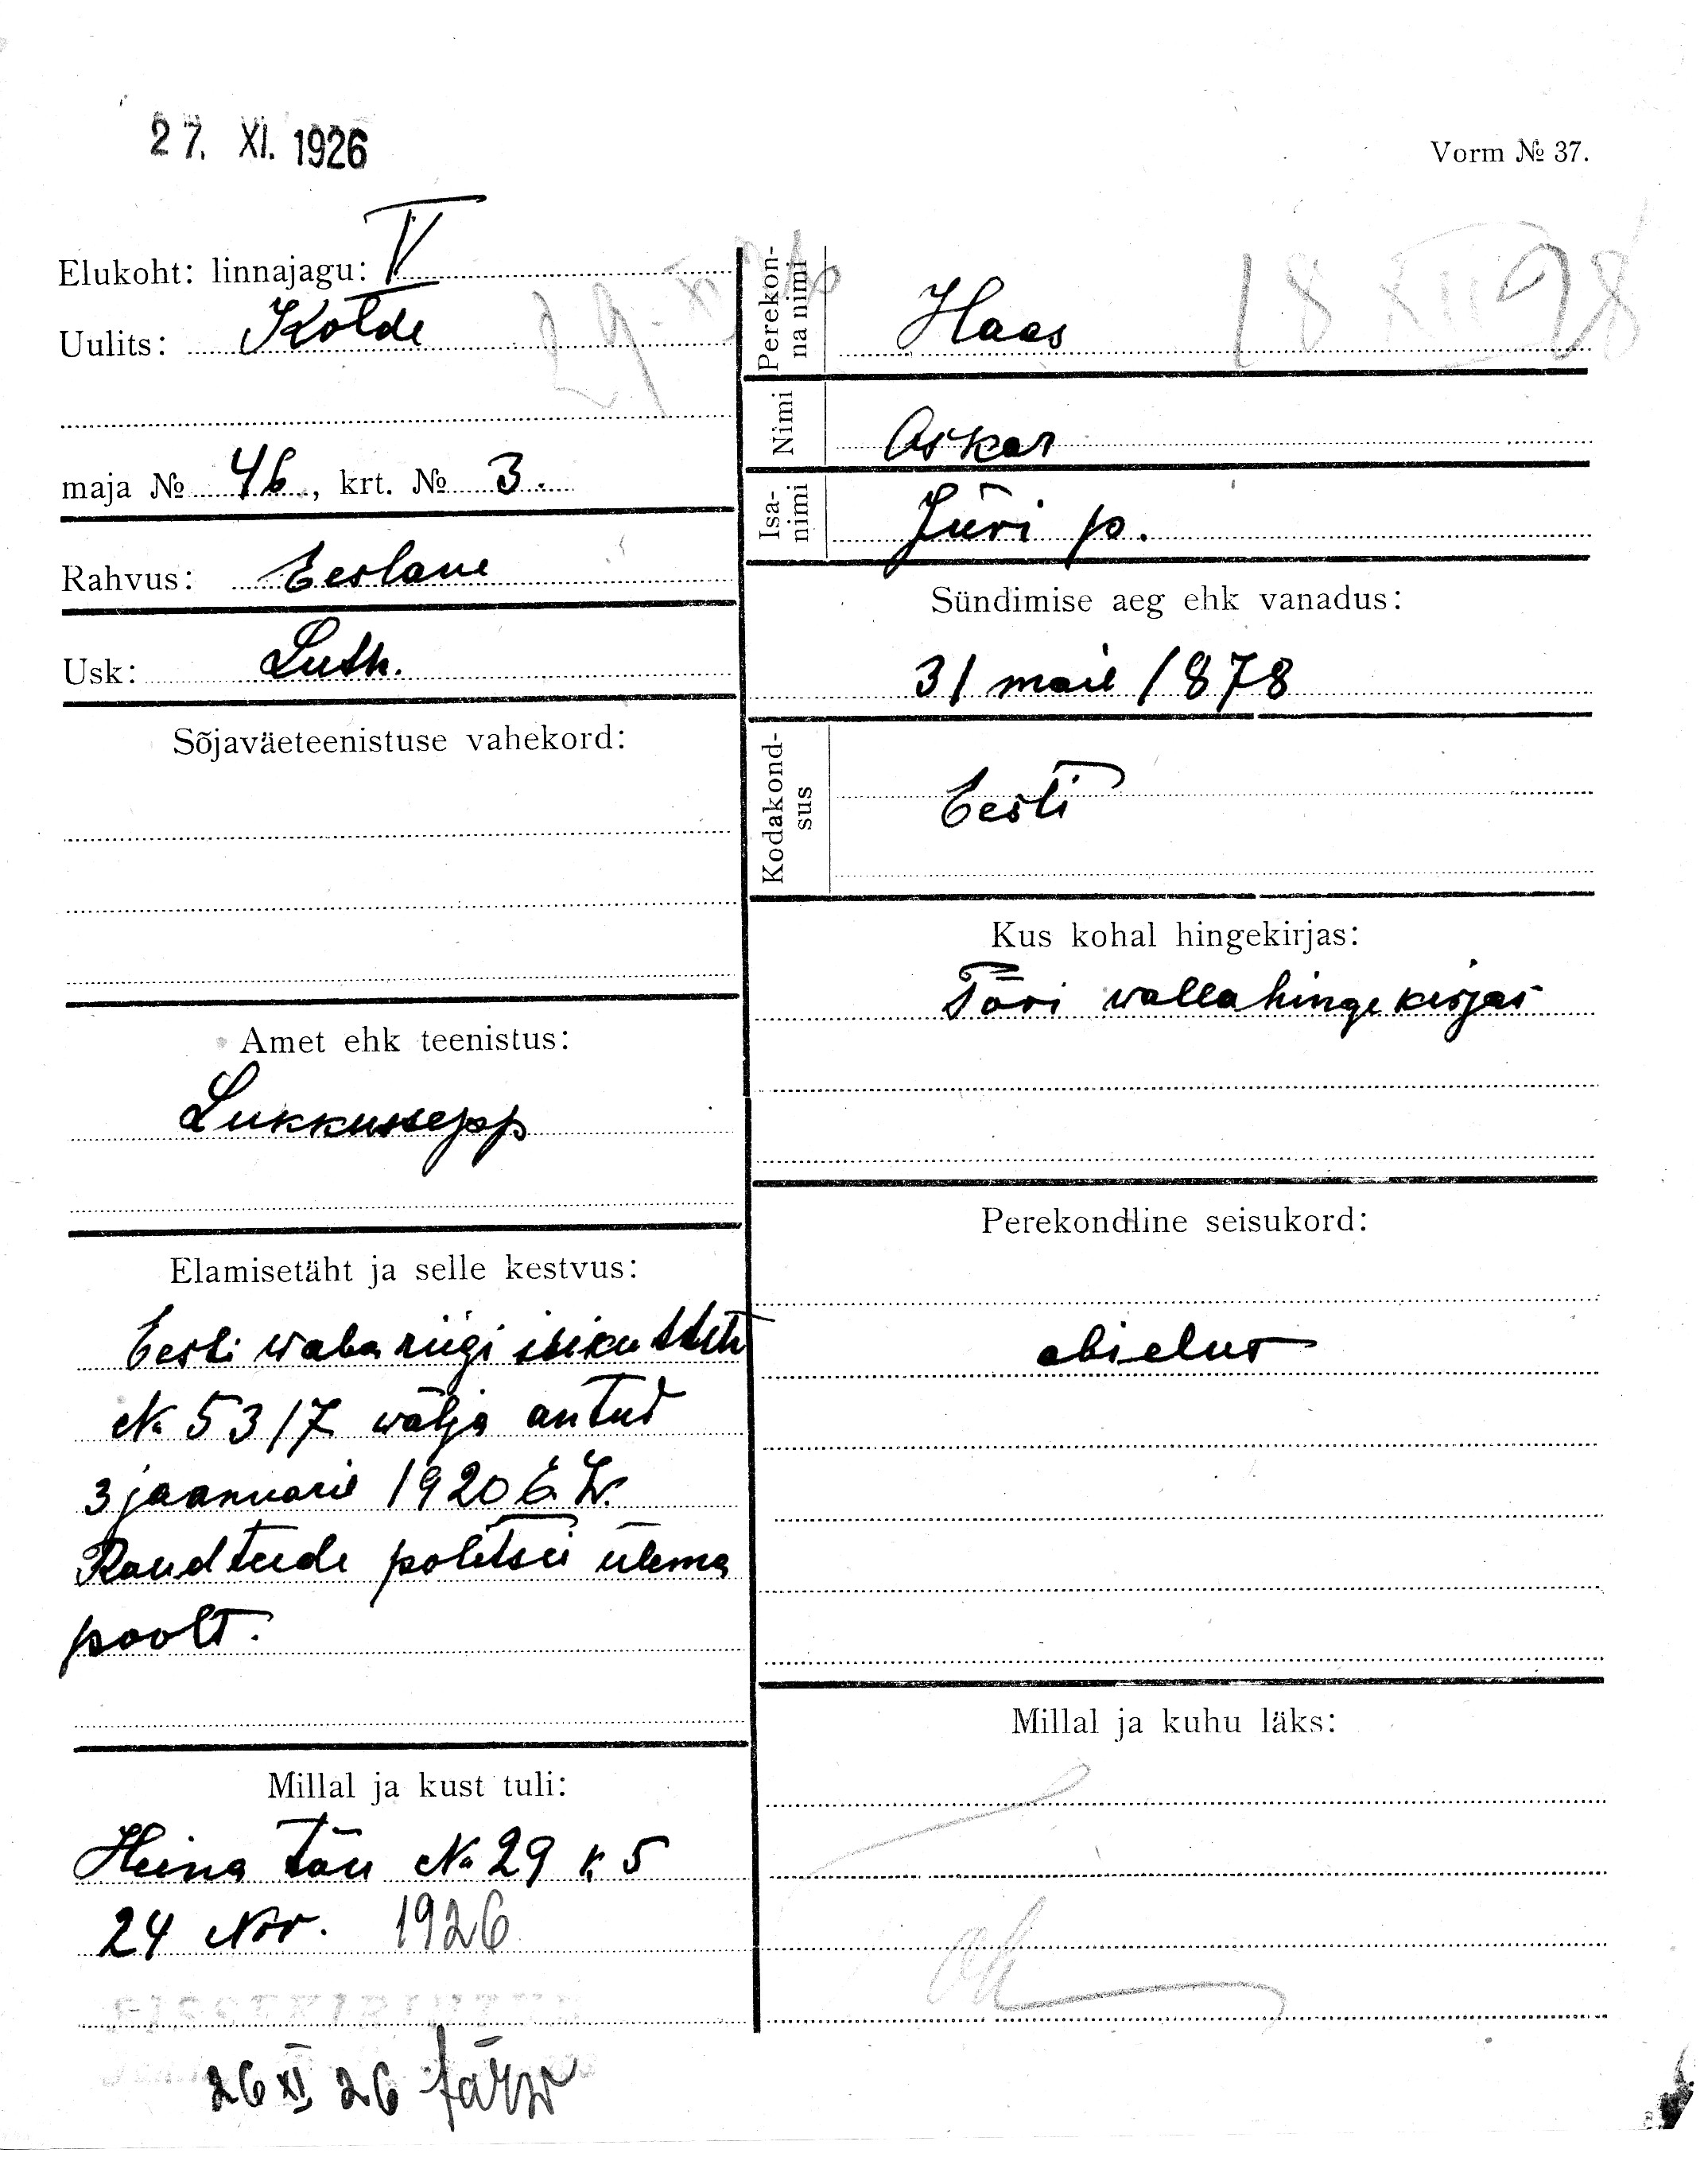 27. XI. 1926
Vorm № 37.
Elukoht: linnajagu: V
Uulits: Kolde
maja № 46, krt. № 3.
Rahvus: Eestlane
Usk: Luth.
Sõjaväeteenistuse vahekord:
Amet ehk teenistus:
Lukkussepp
Elamisetäht ja selle kestvus:
Eesti wabariigi isikut
№ 5317 wälja antud
3 jaanuaril 1920 E.W.
Raudteede politsei ülema
poolt.
Millal ja kust tuli:
Heina tän № 29 k. 5
24 Nov. 1926
26 XI 26
Perekon-
na nimi
Haas
18 XII 28
Nimi
Oskar
Isa-
nimi
Jüri p.
Sündimise aeg ehk vanadus:
31 mail 1878
Kodakond-
sus
Eesti
Kus kohal hingekirjas:
Töri walla hingekirjas
Perekondline seisukord:
abielus
Millal ja kuhu läks: